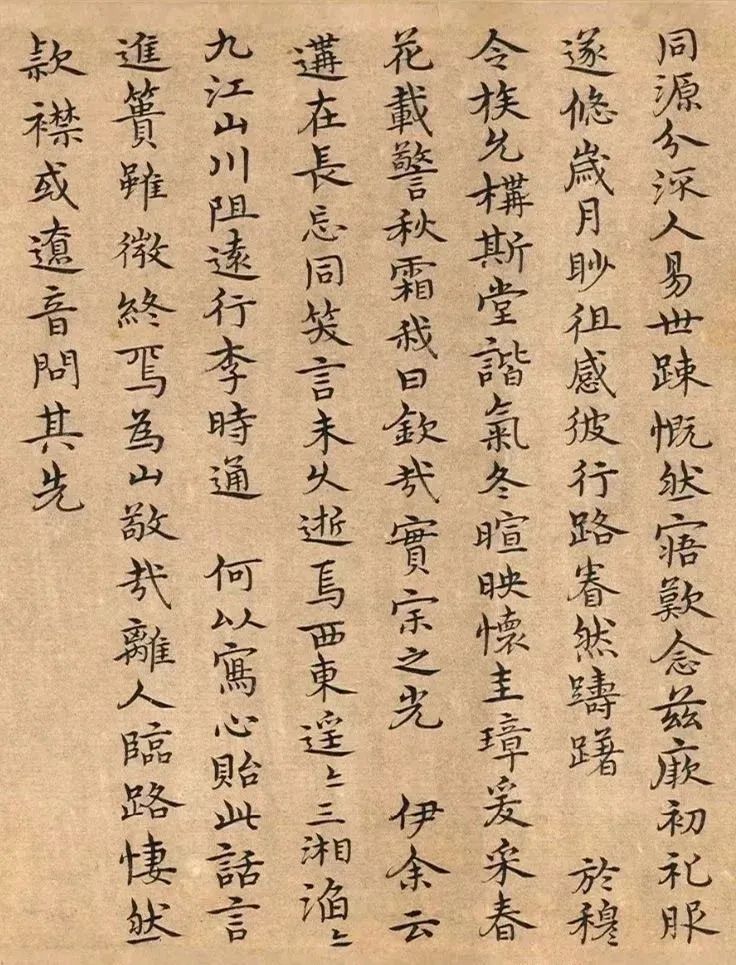 同源分流人易世踈慨然寤歎念茲厥初礼服
遂悠歲月眇徂感彼行路眷然躊躇 於穆
令族允構斯堂諧氣冬暄映懷圭璋爰采春
花載警秋霜我曰欽哉實宗之光 伊余云
遘在長忘同笑言未久逝焉西東遥〻三湘滔〻
九江山川阻遠行李時通 何以寫心貽此話言
進簣雖微終焉為山敬哉離人臨路悽然
款襟或遼音問其先